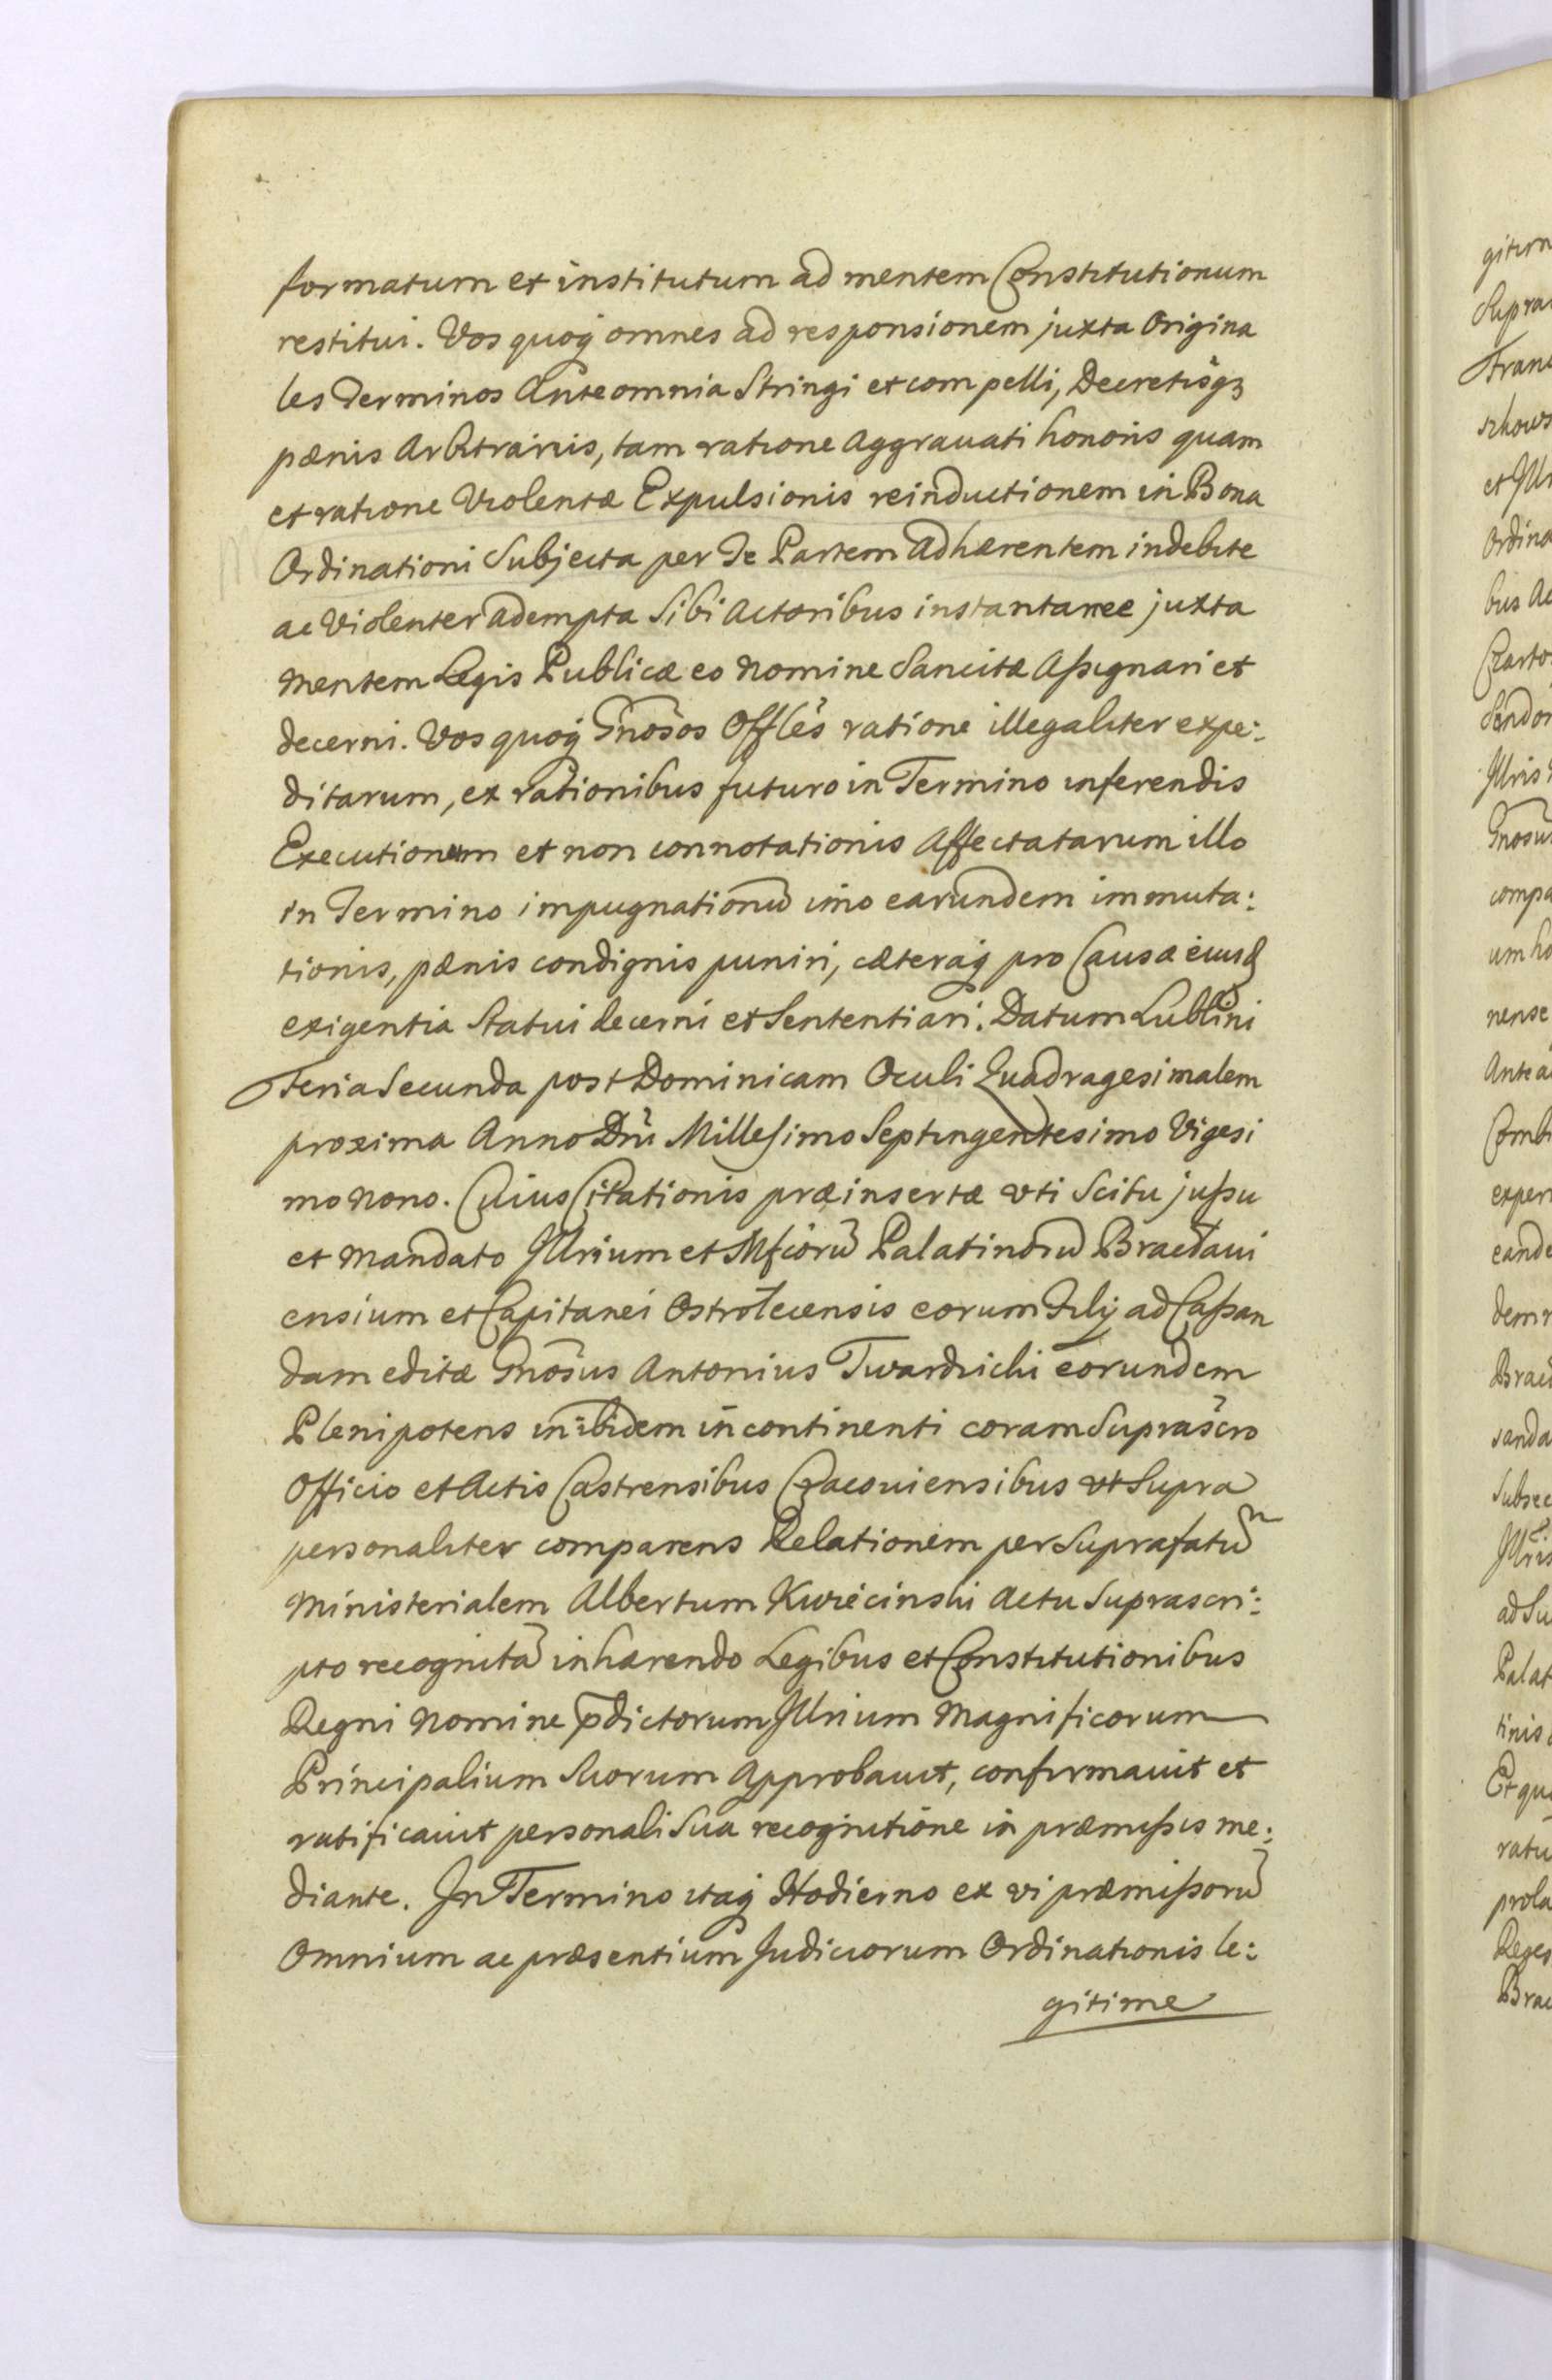 formatum et institutum ad mentem Constitutionum
restitui. Vos quoq omnes ad responsionem juxta Origina
les Terminos Ante omnia Stringi et compelli, Decretisq3
pænis Arbitrariis, tam ratione Aggrauati honoris quam
et ratione Violentæ Expulsionis reinductionem in Bona
Ordinationi Subjecta per Te Partem Adhærentem indebite
ac Violenter adempta Sibi Actoribus instantanee juxta
mentem Legis Publicæ eo Nomine Sancitæ Aſsignari et
decerni. Vos quoq Gnosos Offles ratione illegaliter expe:
ditarum, ex rationibus futuro in Termino inferendis
Executionum et non connotationis Affectatarum illo
in Termino impugnationũ imo earundem immuta:
tionis, pænis condignis puniri, cæteraq pro Causæ eiusd
exigentia Statui decerni et Sententiari. Datum Lublini
Feria Secunda post Dominicam Oculi Quadragesimalem
proxima Anno Dni Milleſimo Septingentesimo Vigesi
mo nono. Cuius Citationis præinsertæ vti Scitu juſsu
et Mandato Jllrium et Mfcorũ Palatinorũ Bracłaui
ensium et Capitanei Ostrołecensis eorum Filij ad Caſsan
dam editæ Gnosus Antonius Twardzicki eorundem
Plenipotens inibidem in continenti coram Suprascro
Officio et Actis Castrensibus Cracouiensibus vt Supra
personaliter comparens Relationem per Suprafatũ
Ministerialem Albertum Kwiecinski Actu Suprascri:
pto recognitã inhærendo Legibus et Constitutionibus
Regni Nomine p̄dictorum Jllrium Magnificorum
Principalium Suorum Approbauit, confirmauit et
ratificauit personali Sua recognitione in præmiſsis me:
diante. Jn Termino itaq Hodierno ex vi præmiſsorũ
Omnium ac præsentium Judiciorum Ordinationis le:
gitime